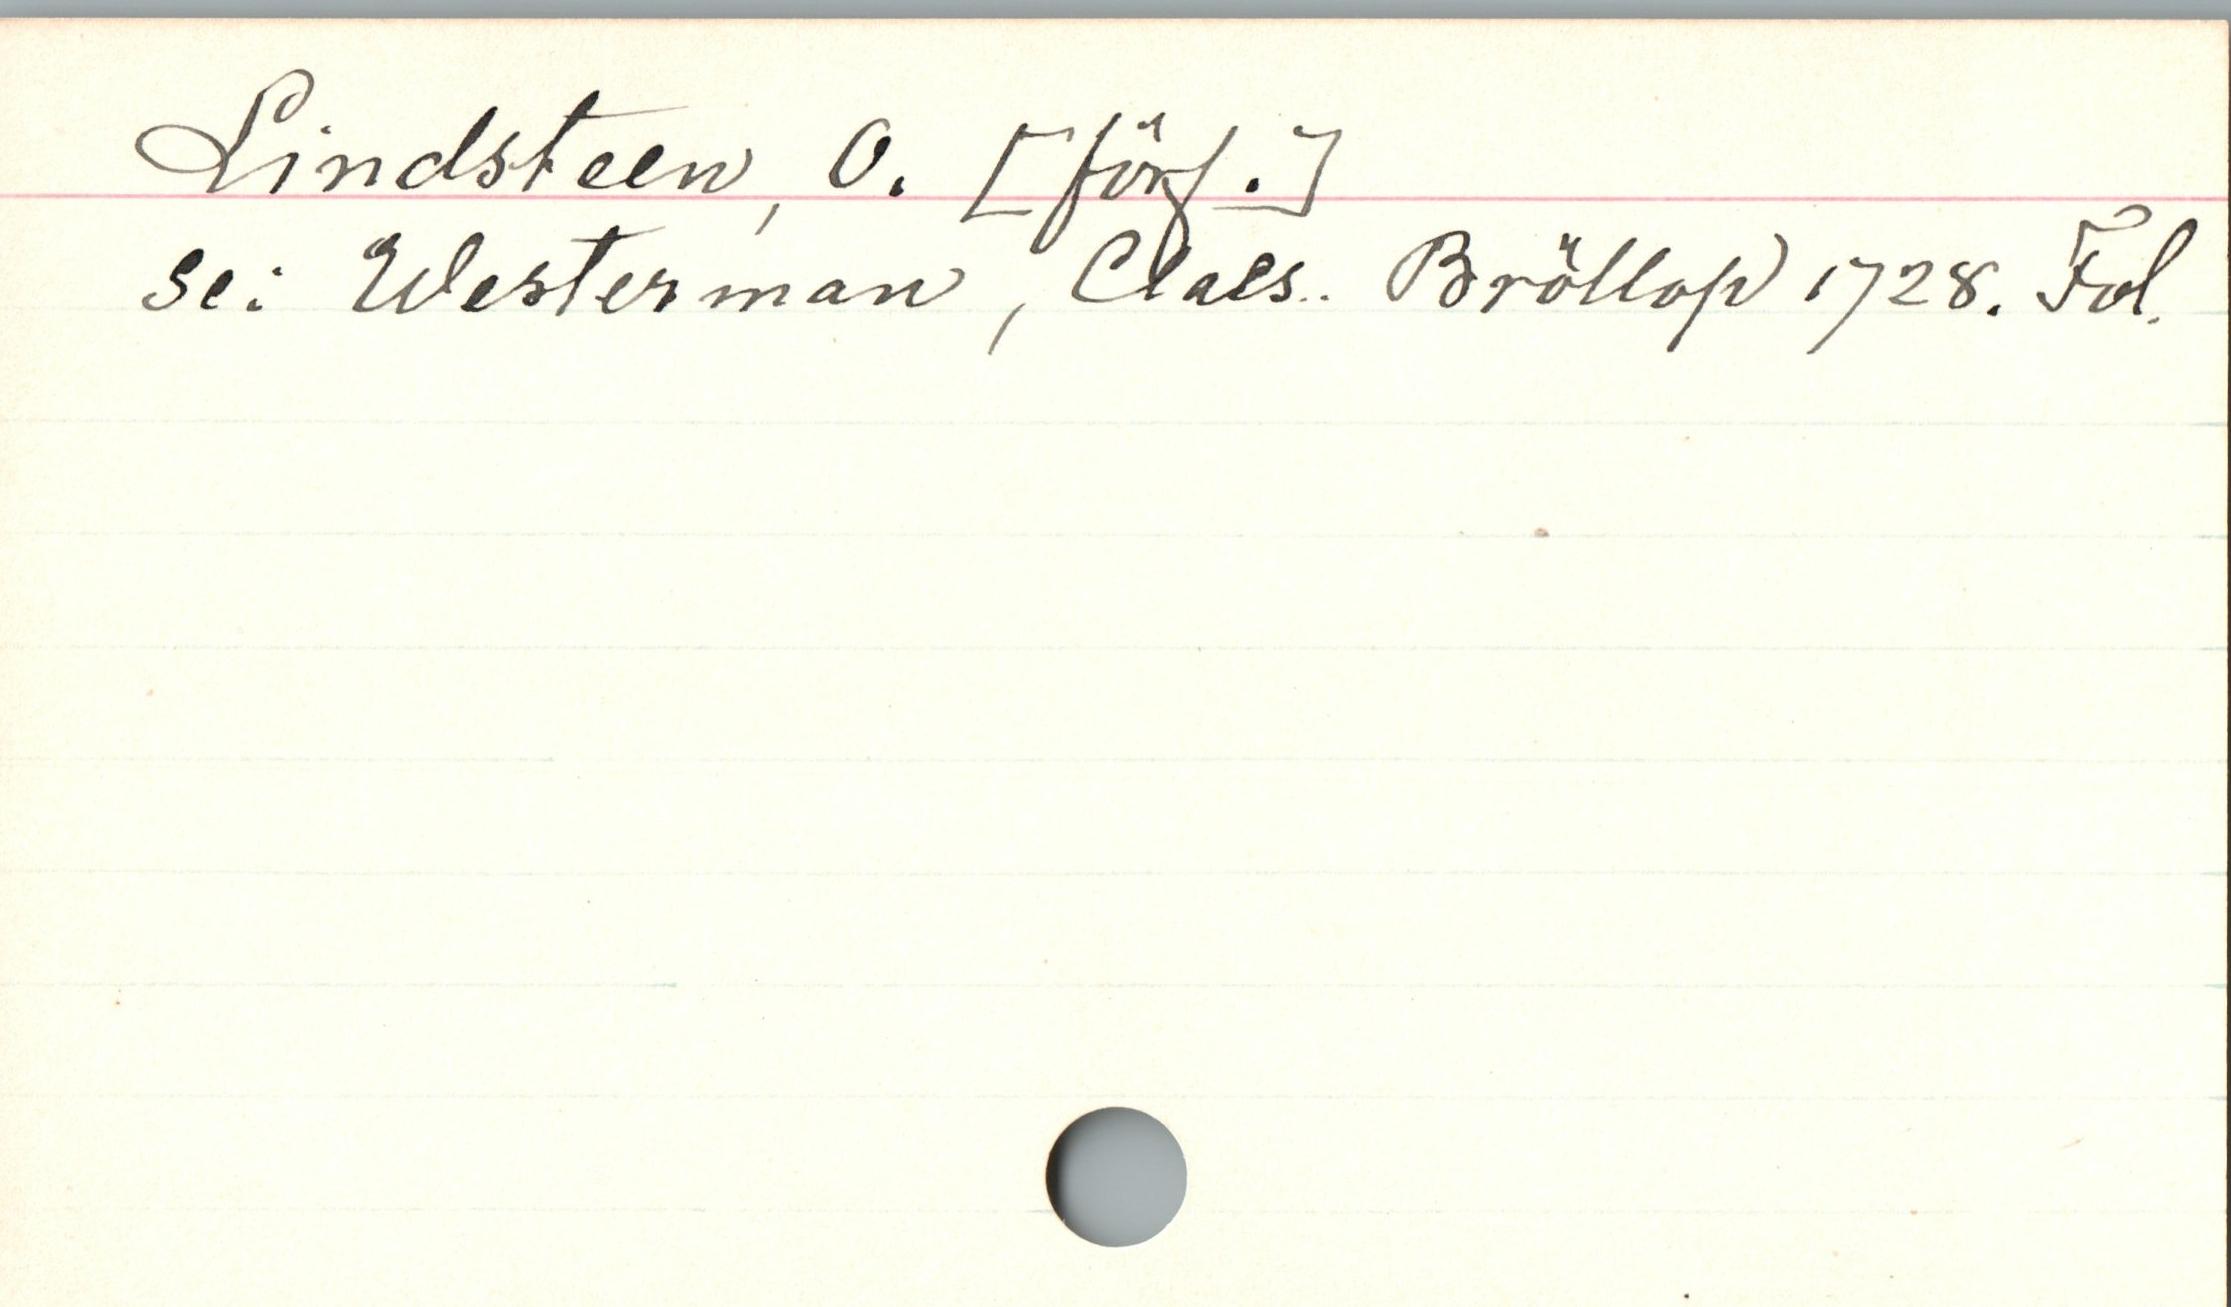 Lindsteen, O. [förf.]
se: Westerman, Claes. Bröllop 1728. Fol.